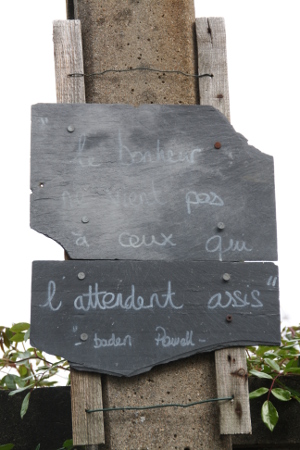 " le bonheur
ne vient pas
à ceux qui
l'attendent assis"
" baden Powell -